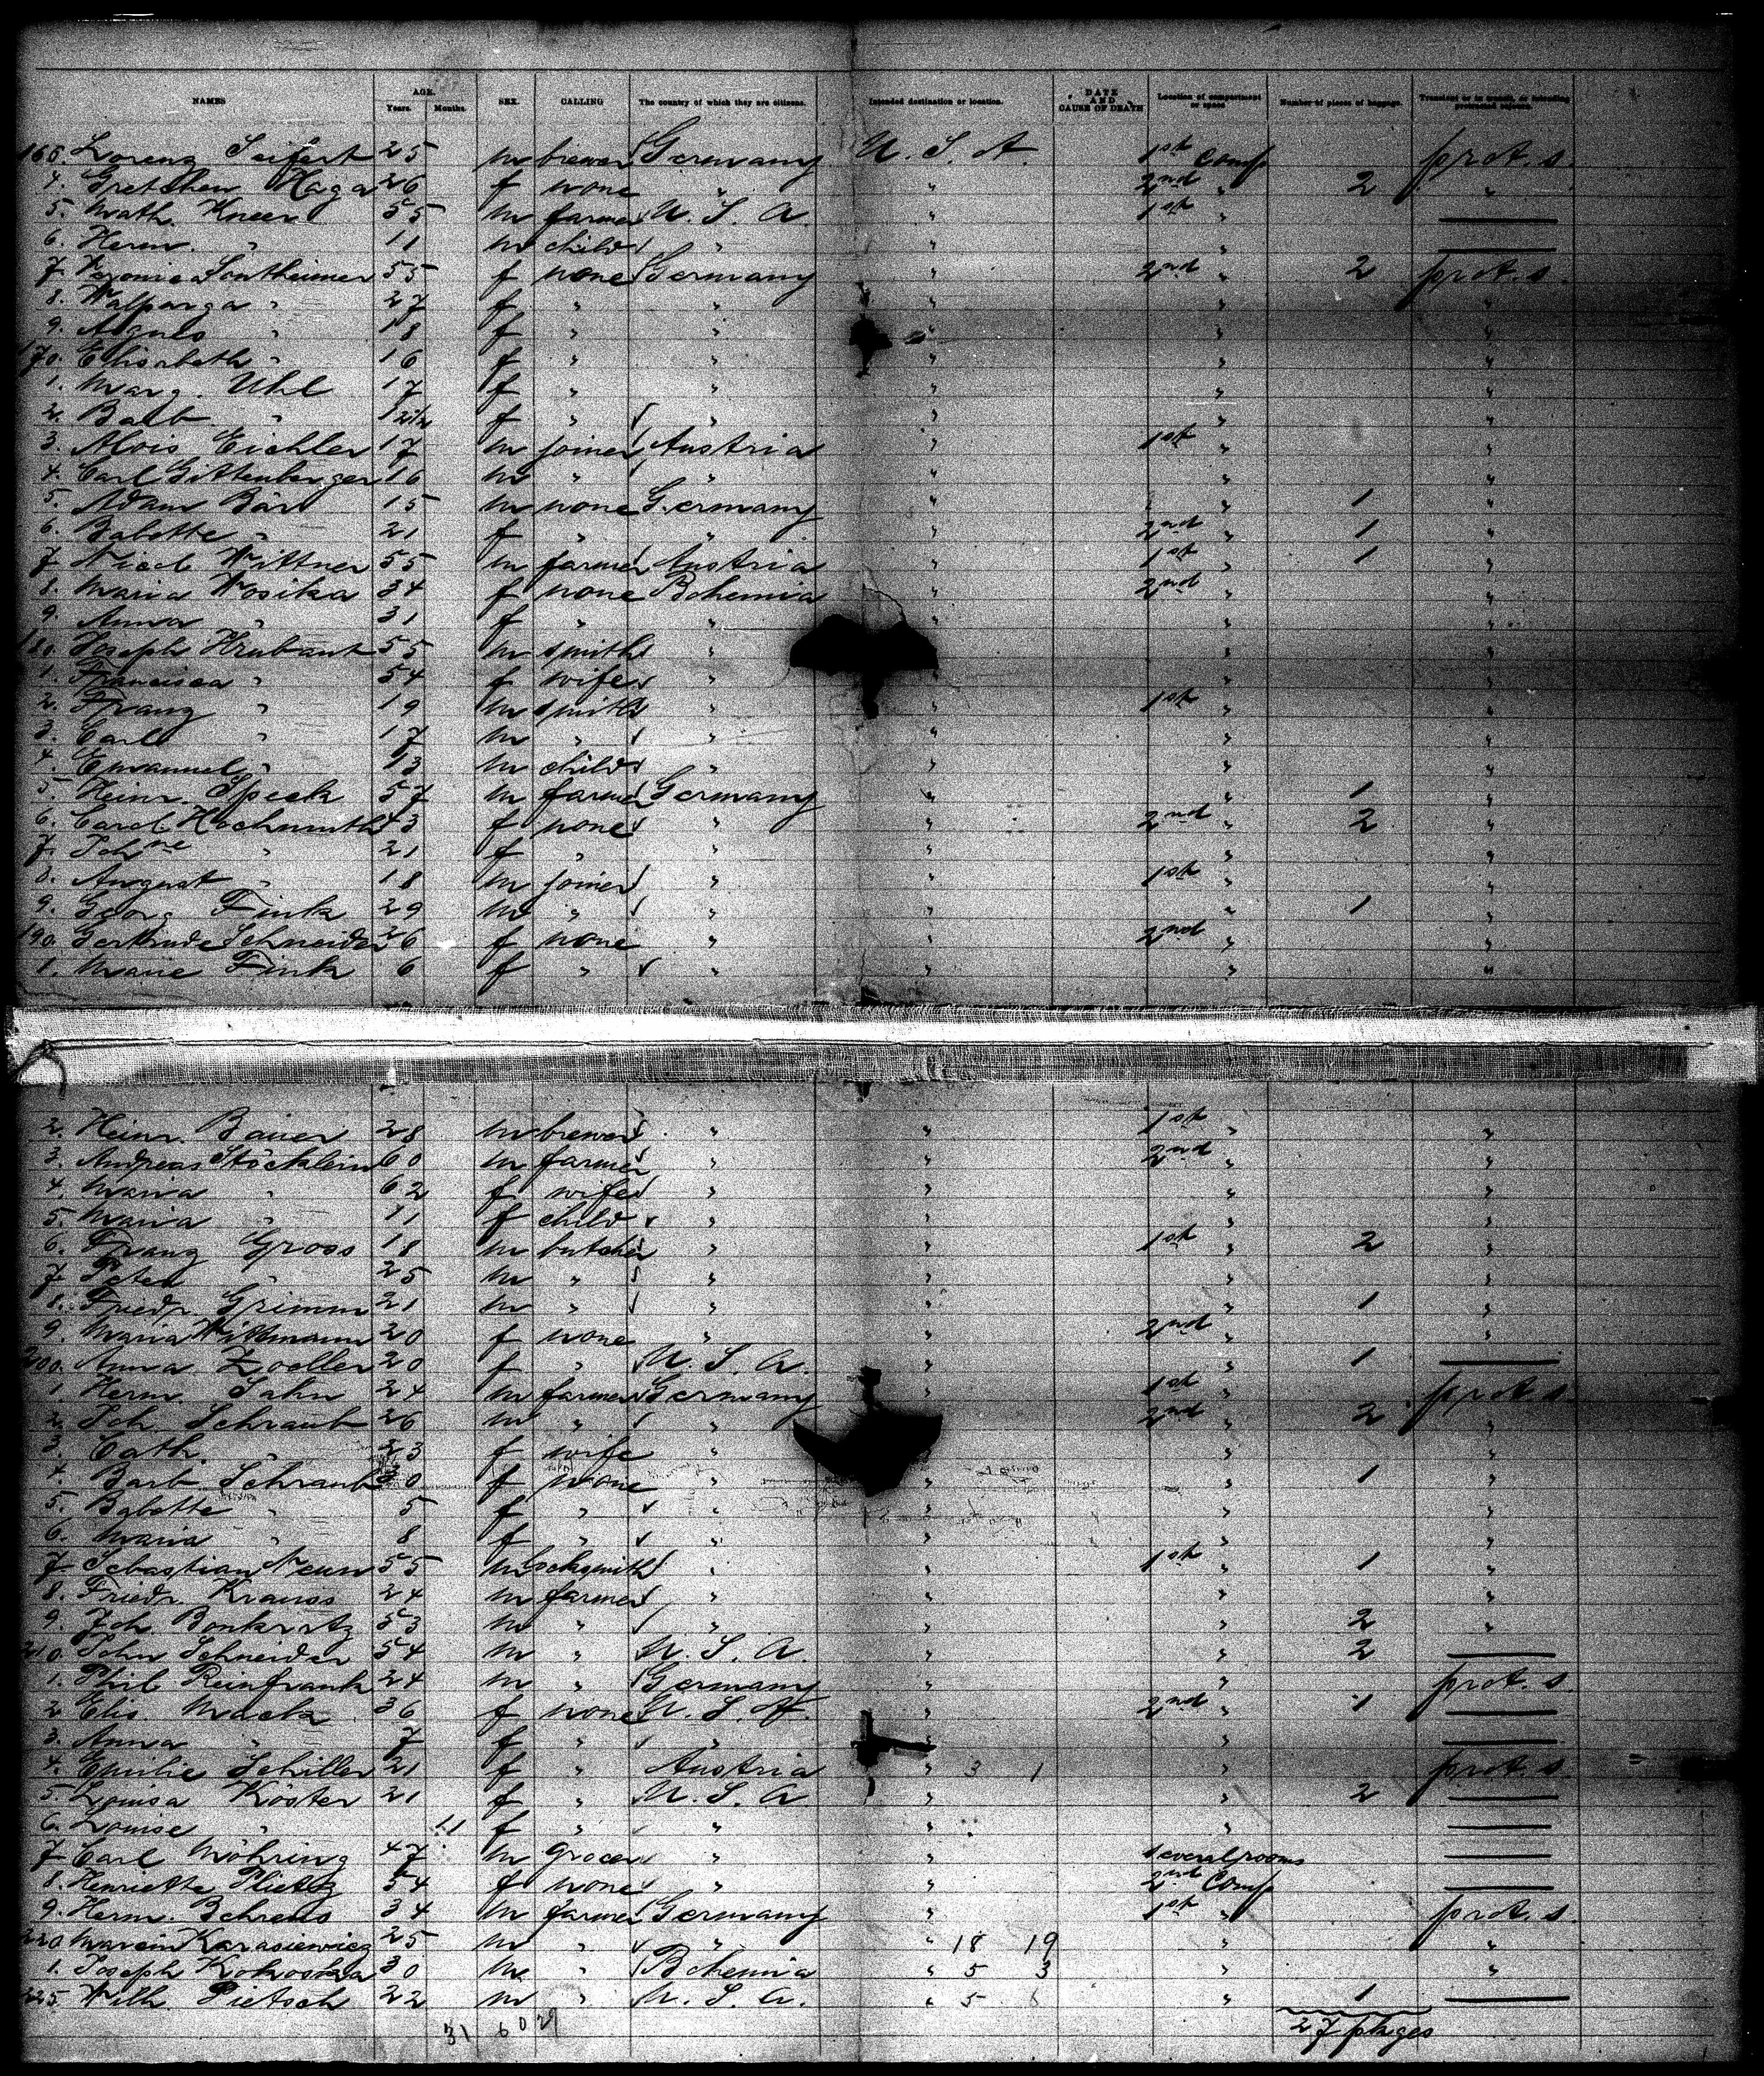 NAMES AGE. Years. Months. SEX. CALLING The country of which they are citizens. Intended destination or location. DATE AND CAUSE OF DEATH Location of compartment or space Number of pieces of baggage. Transient or in transit, or intending protracted sojourn.
165. Lorenz Seifert 25 m brewer Germany U. S. A. 1st Comp prot. s.
4. Gretchen Haga 26 f none " " 2nd " 2 "
5. Math. Kneer 55 m farmer U. S. A " 1st " —
6. Herm. " 11 m child " " " —
7 Veronica Sontheimer 55 f none Germany " 2nd " 2 prot. s.
8. Walparga " 27 f " " " " "
9. Agnes " 18 f " " " " "
170. Elisabeth " 16 f " " " " "
1. Marg. Uhl 17 f " " " " "
2. Barb. " f " " " " "
3. Alois Eichler 17 m joiner Austria " 1st " "
4. Carl Gittenberger 16 m " " " " "
5. Adam Bär 15 m none Germany " " 1 "
6. Babette " 21 f " " " 2nd " 1 "
7 Nicol Wittner 55 m farmer Austria " 1st " 1 "
8. Maria Wosika 34 f none Bohemia " 2nd " "
9. Anna " 31 f " " " " "
180. Joseph Hrubant 55 m smith " " " "
1. Francisca " 54 f wife " " " "
2. Franz " 19 m smith " " 1st " "
3. Carl " 17 m " " " " "
4. Emanuel " 13 m child " " " "
5. Heinr. Speck 57 m farmer Germany " " 1 "
6. Carol. Hochmuth 43 f none " " 2nd " 2 "
7. Johne " 21 f " " " " "
8. August " 18 m joiner " " 1st " "
9. Georg Fink 29 m " " " " 1 "
190. Gertrude Schneider 26 f none " " 2nd " "
1. Marie Fink 6 f " " " " "
2. Heinr. Bauer 28 m brewer " " 1st " "
3. Andreas Stöcklein 60 m farmer " " 2nd " "
4. Maria " 62 f wife " " " "
5. Maria " 11 f child " " " "
6. Franz Gross 18 m butcher " " 1st " 2 "
7 Peter " 25 m " " " " "
8. Friedr. Grimm 21 m " " " " 1 "
9. Maria Wittmann 20 f none " " 2nd " "
200. Anna Zoeller 20 f " U. S. A. " " 1 —
1. Herm. Jahn 24 m farmer Germany " 1st " prot. s.
2. Joh. Schraub 26 m " " " 2nd " 2 "
3. Cath. " 23 f wife " " " "
4. Barb. Schraub 30 f none " " " 1 "
5. Babette " 5 f " " " " "
6. Maria " 8 f " " " " "
7 Sebastian Neun 55 m locksmith " " 1st " 1 "
8. Friedr. Krauss 24 m farmer " " " "
9. Joh. 53 m " " " " 2 "
210. John Schneider 54 m " U. S. A. " " 2 —
1. Phil Reinfrank 24 m " Germany " " prot. s.
2 Elis. Mack 36 f none U. S. A. " 2nd " 1 —
3. Anna " 7 f " " " " —
4. Emilie Schiller 21 f " Austria " 3 1 " prot. s.
5. Louisa Köster 21 f " U. S. A " " 2 —
6. Louise " 11 f " " " " —
7 Carl Möhring 47 m grocer " " several rooms —
8. Henriette 54 f none " " 2nd Comp —
9. Herm. Behrens 34 m farmer Germany " 1st " prot. s.
220 Marcin Karasiewicz 25 m " " " 18 19 " "
1. Joseph Kokoska 30 m " Bohemia " 5 3 " "
225. Wilh. Pietsch 22 m " U. S. A. " 5 6 " 1 —
31 60 29 27 pkges